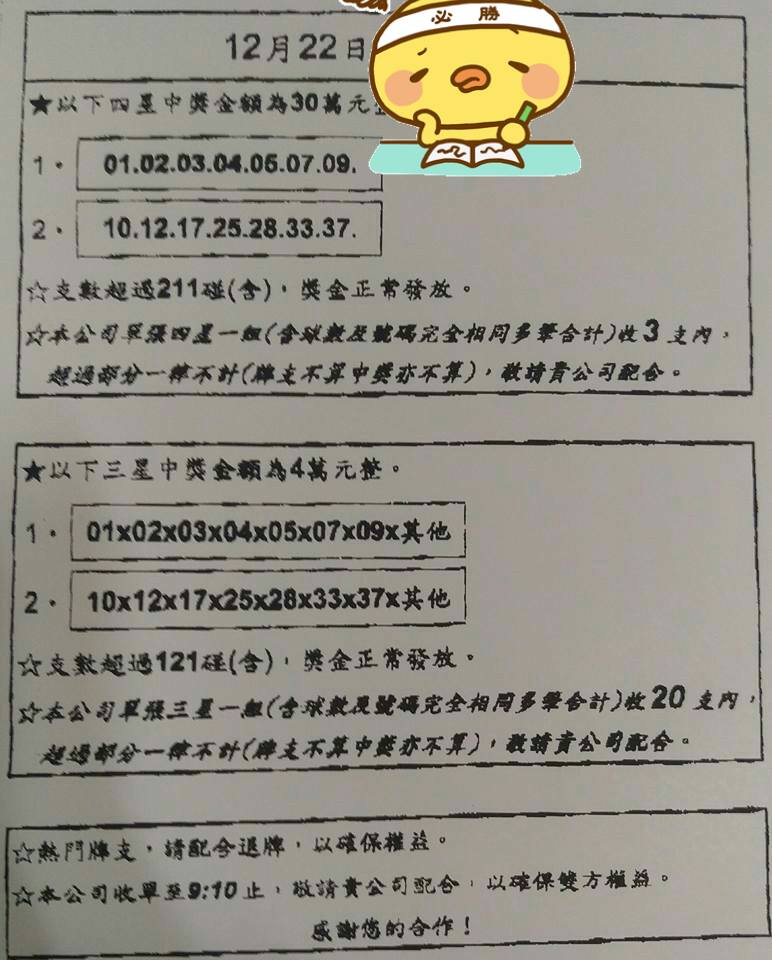 必勝
12月22日
★以下四星中獎金額為30萬元整
1. 01.02.03.04.05.07.09.
2. 10.12.17.25.28.33.37.
☆支數超過211碰(含),獎金正常發放。
☆本公司單張四星一組(含球數及號碼完全相同多筆合計)收3支內,
超過部分一律不計(牌支不算中獎亦不算),敬請貴公司配合。
★以下三星中獎金額為4萬元整。
1. 01x02x03x04x05x07x09x其他
2. 10x12x17x25x28x33x37x其他
☆支數超過121碰(含),獎金正常發放。
☆本公司單張三星一組(含球數及號碼完全相同多筆合計)收20支內,
超過部分一律不計(牌支不算中獎亦不算),敬請貴公司配合。
☆熱門牌支,請配合退牌,以確保權益。
☆本公司收單至9:10止,敬請貴公司配合,以確保雙方權益。
感謝您的合作!